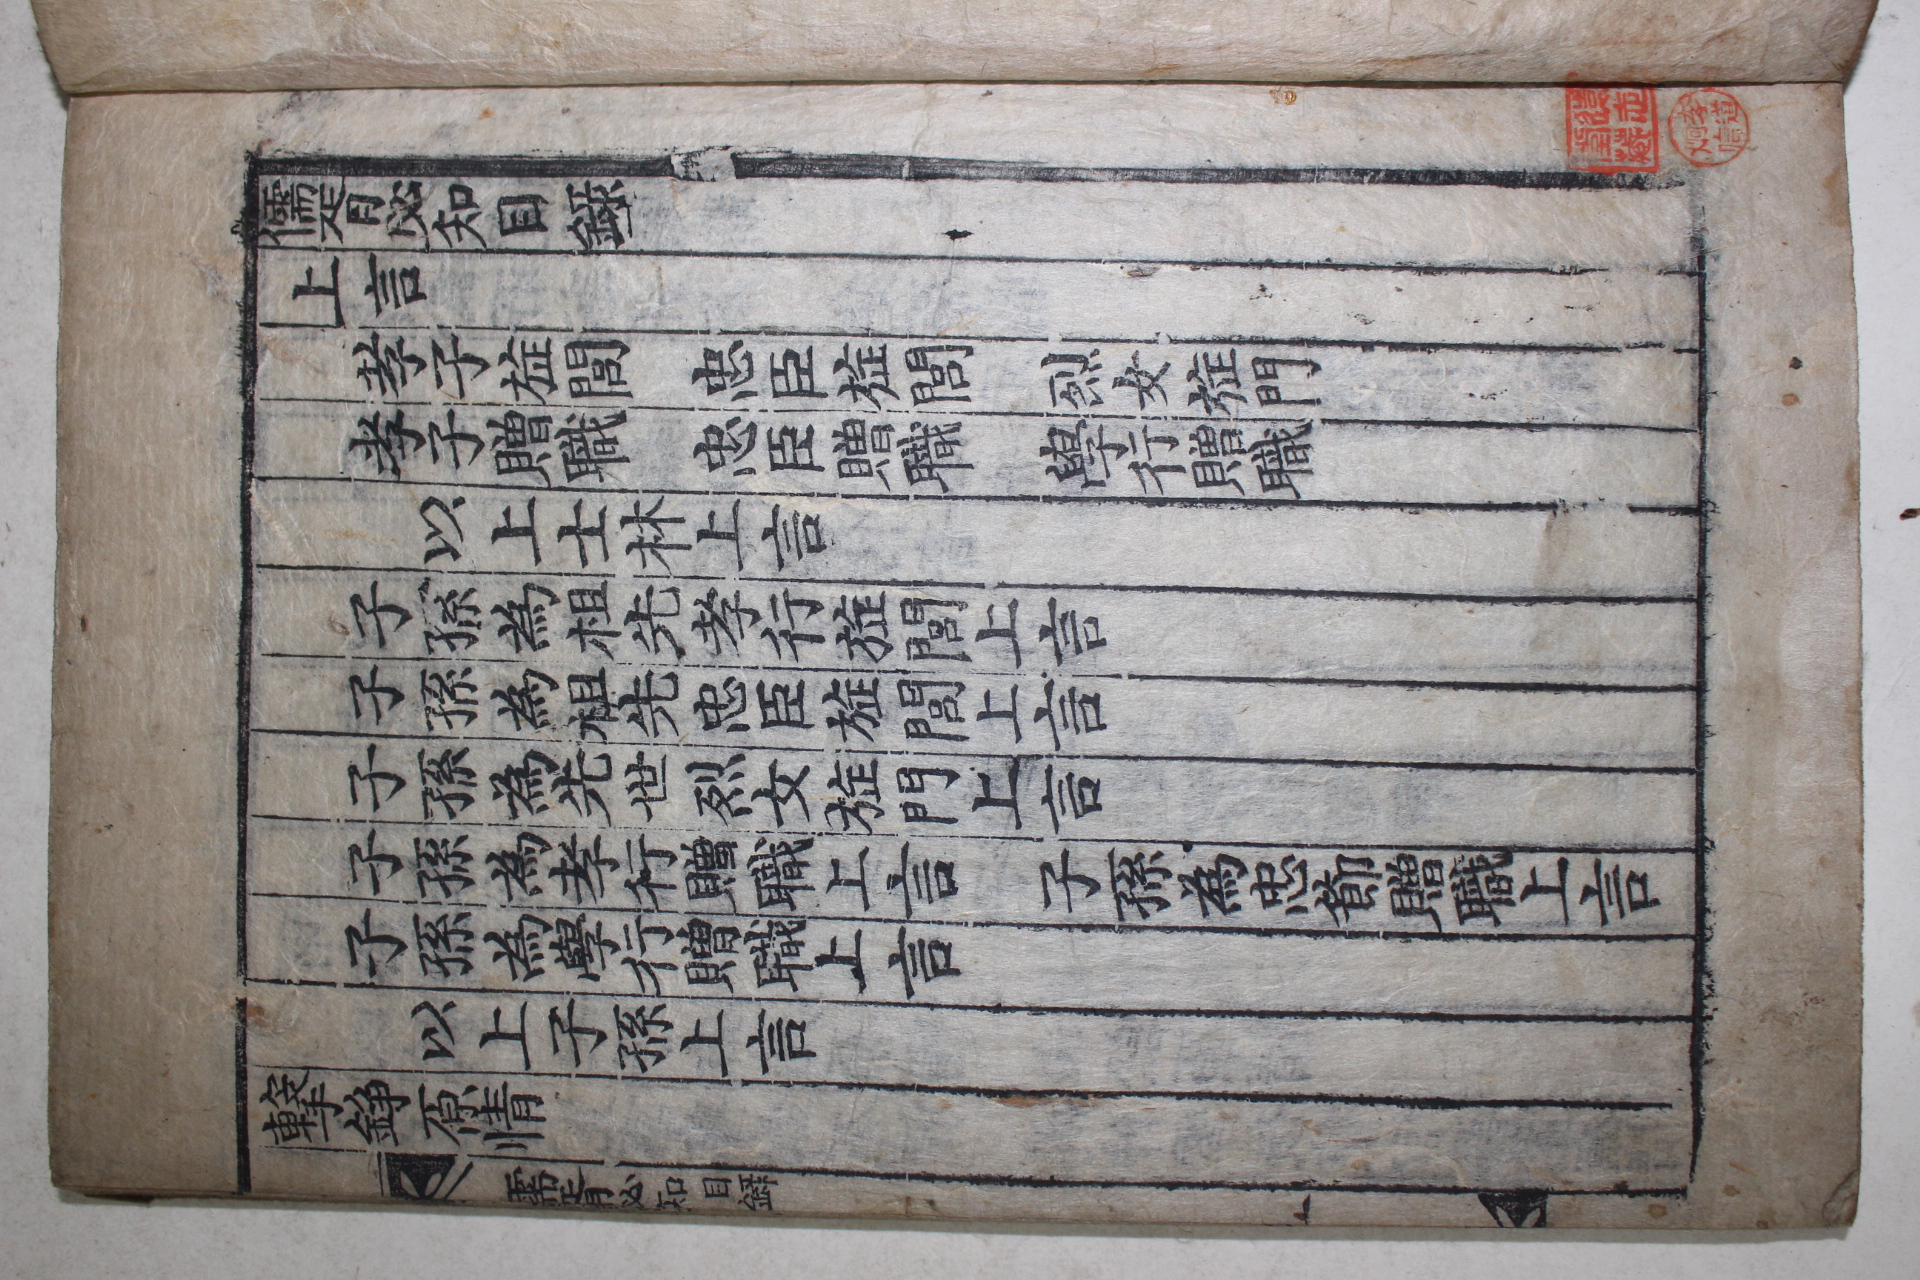 儒胥必知目錄
上言
孝子旌閭 忠臣旌閭 烈女旌門
孝子贈職 忠臣贈職 學行贈職
以上士林上言
子孫為祖先孝行旌閭上言
子孫為祖先忠臣旌閭上言
子孫為先世烈女旌門上言
子孫為孝行贈職上言 子孫為忠節贈職上言
子孫為學行贈職上言
以上子孫上言
擊錚原情
儒胥必知目錄 一